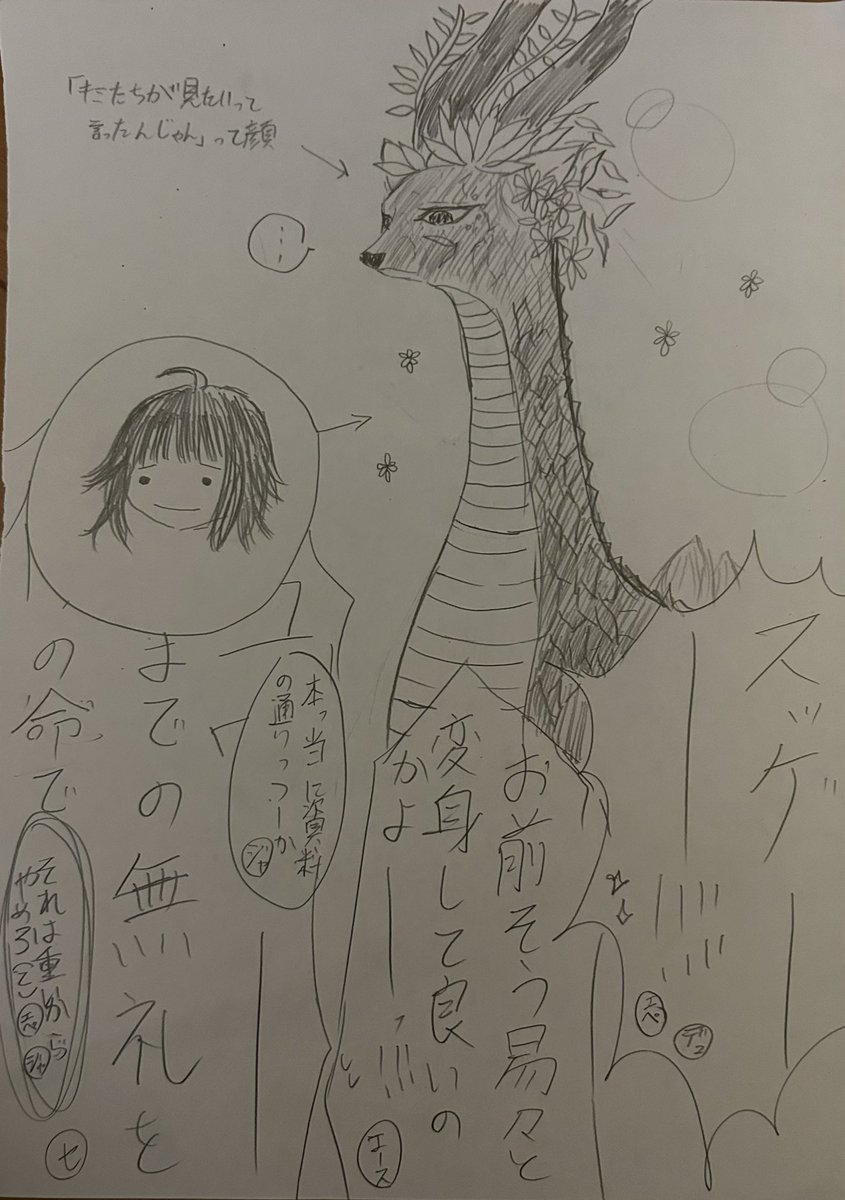 「キミたちが見たいって
言ったんじゃん」って顔
…
スッゲ
エペ
デュ
お前そう易々と
変身して良いの
かよ
エース
本っ当に資料
の通りっつーか
ジャ
までの無礼を
の命で
セ
それは重いから
やめろ
エペ
ジャ